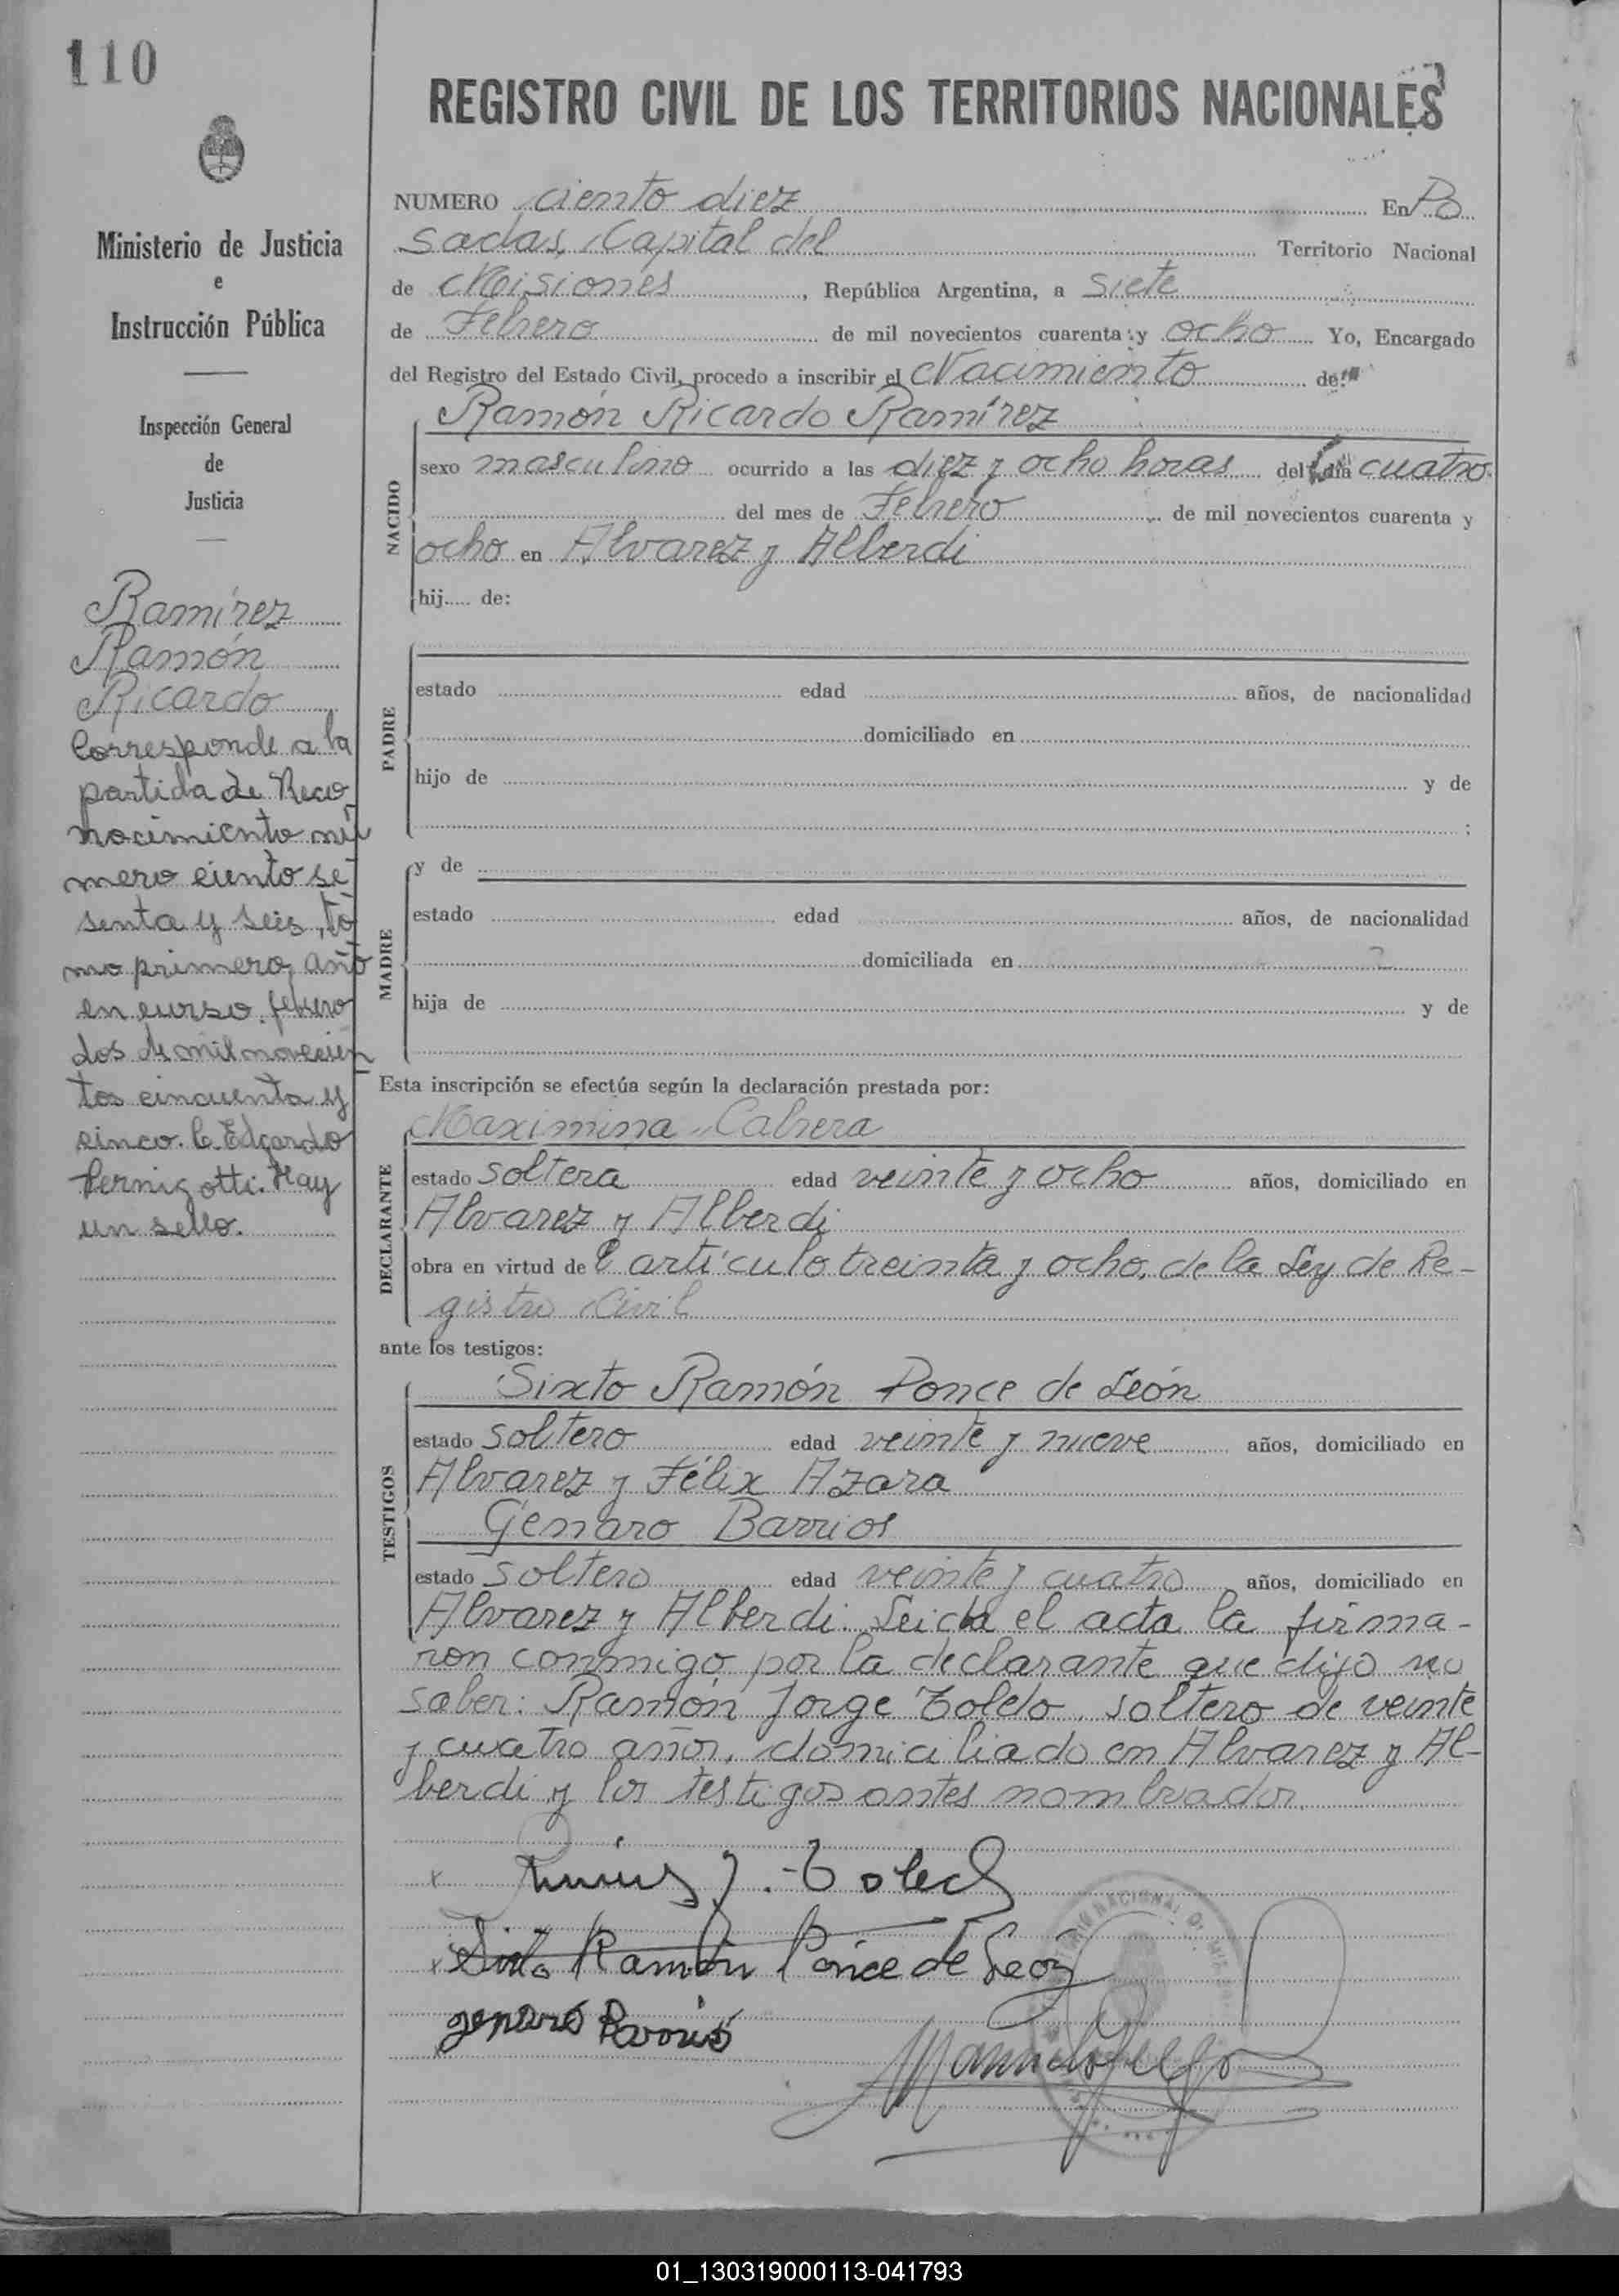 110
Ministerio de Justicia
e
Instrucción Pública
Inspección General
de
Justicia
Ramírez
Ramón
Ricardo
Corresponde a la
partida de Reco
nocimiento nú
mero ciento se
senta y seis, to
mo primero, año
en curso. febrero
dos de mil novecien
tos cincuenta y
cinco. C. Edgardo
Pernigotti. Hay
un sello.
REGISTRO CIVIL DE LOS TERRITORIOS NACIONALES
NUMERO ciento diez En Po
sadas, Capital del Territorio Nacional
de Misiones, República Argentina, a siete
de Febrero de mil novecientos cuarenta y ocho Yo, Encargado
del Registro del Estado Civil, procedo a inscribir el Nacimiento de:
NACIDO
Ramón Ricardo Ramírez
sexo masculino ocurrido a las diez y ocho horas del día cuatro
del mes de Febrero de mil novecientos cuarenta y
ocho en Alvarez y Alberdi
hij..... de:
PADRE
estado edad años, de nacionalidad
domiciliado en
hijo de y de
;
MADRE
y de
estado edad años, de nacionalidad
domiciliada en
hija de y de
Esta inscripción se efectúa según la declaración prestada por:
DECLARANTE
Maximina Cabrera
estado soltera edad veinte y ocho años, domiciliado en
Alvarez y Alberdi
obra en virtud de l artículo treinta y ocho, de la Ley de Re-
gistro Civil
ante los testigos:
TESTIGOS
Sixto Ramón Ponce de León
estado soltero edad veinte y nueve años, domiciliado en
Alvarez y Félix Azara
Génaro Barrios
estado soltero edad veinte y cuatro años, domiciliado en
Alvarez y Alberdi. Leida el acta la firma-
ron conmigo, por la declarante que dijo no
saber: Ramón Jorge Toledo, soltero de veinte
y cuatro años, domiciliado en Alvarez y Al-
berdi y los testigos antes nombrados.
J. Toledo
Sixto Ramón Ponce de León
genaro Barrios
01_130319000113-041793